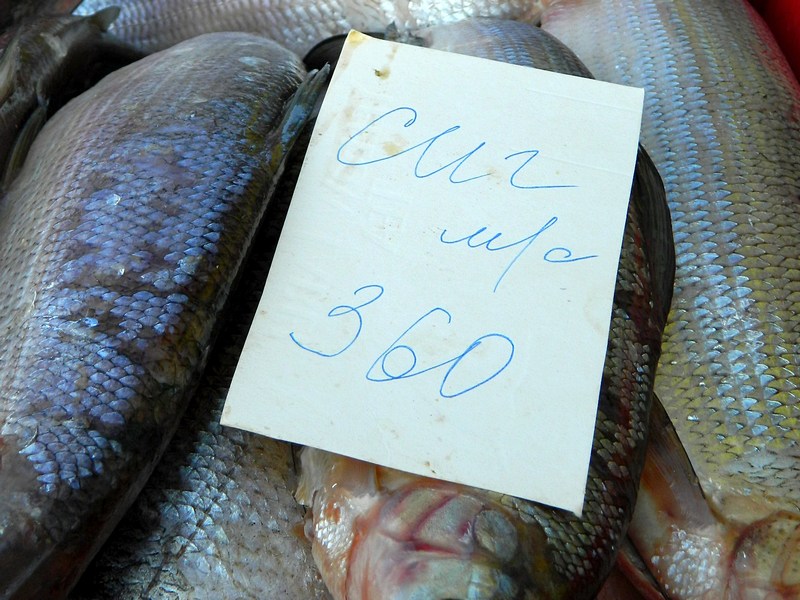 сиг
м/с
360